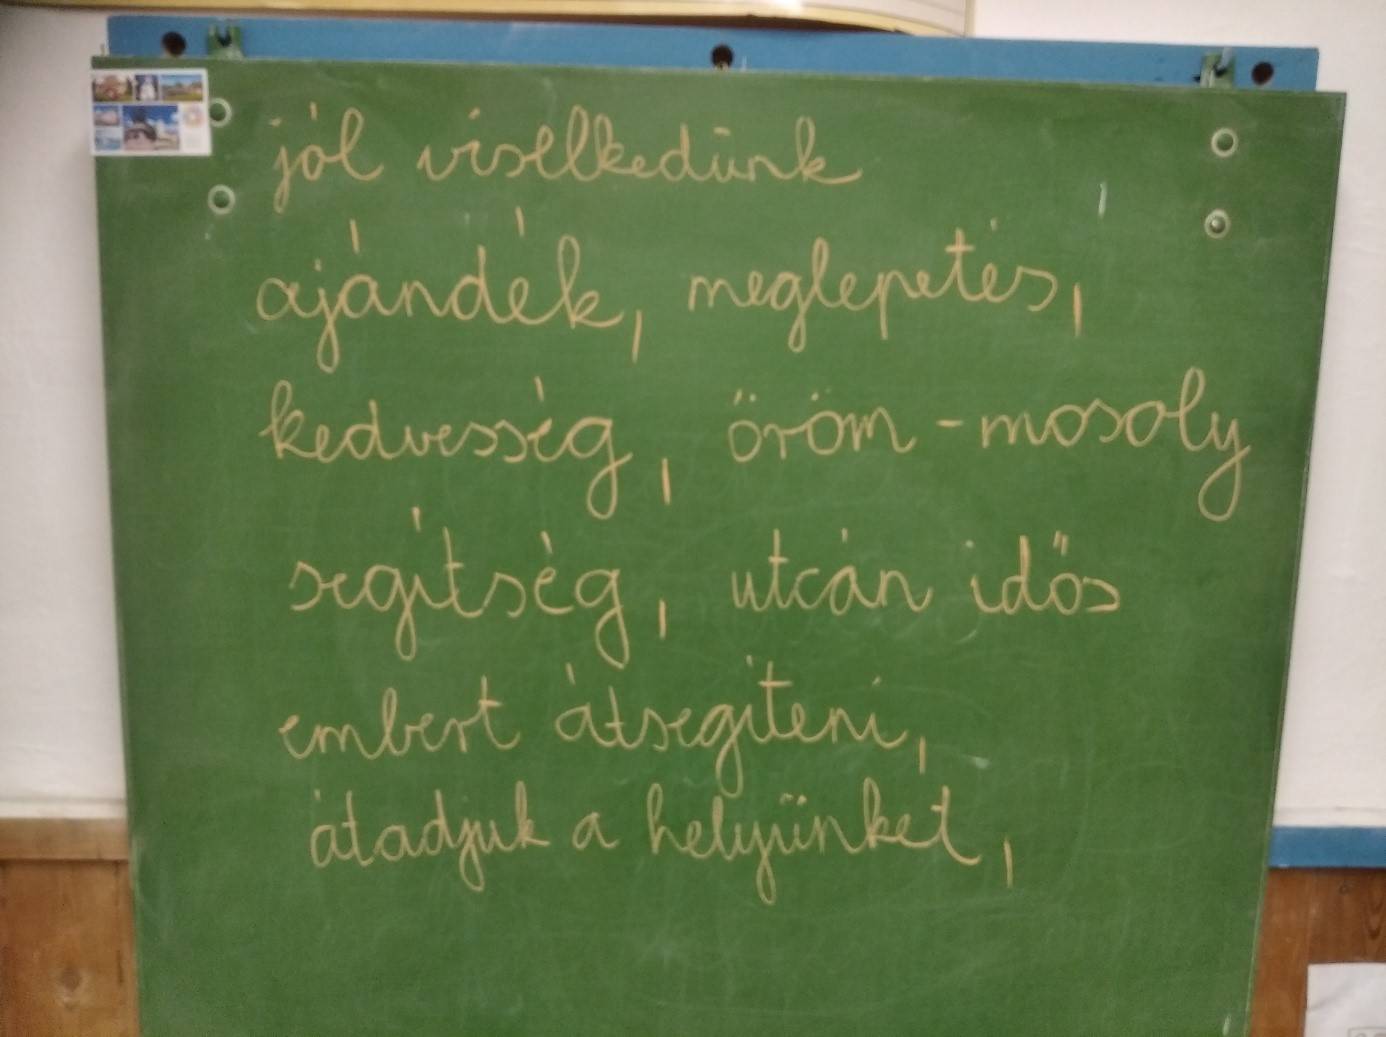 jól viselkedünk
ajándék, meglepetés,
kedvesség, öröm - mosoly
segítség, utcán idős
embert átsegíteni,
átadjuk a helyünket,